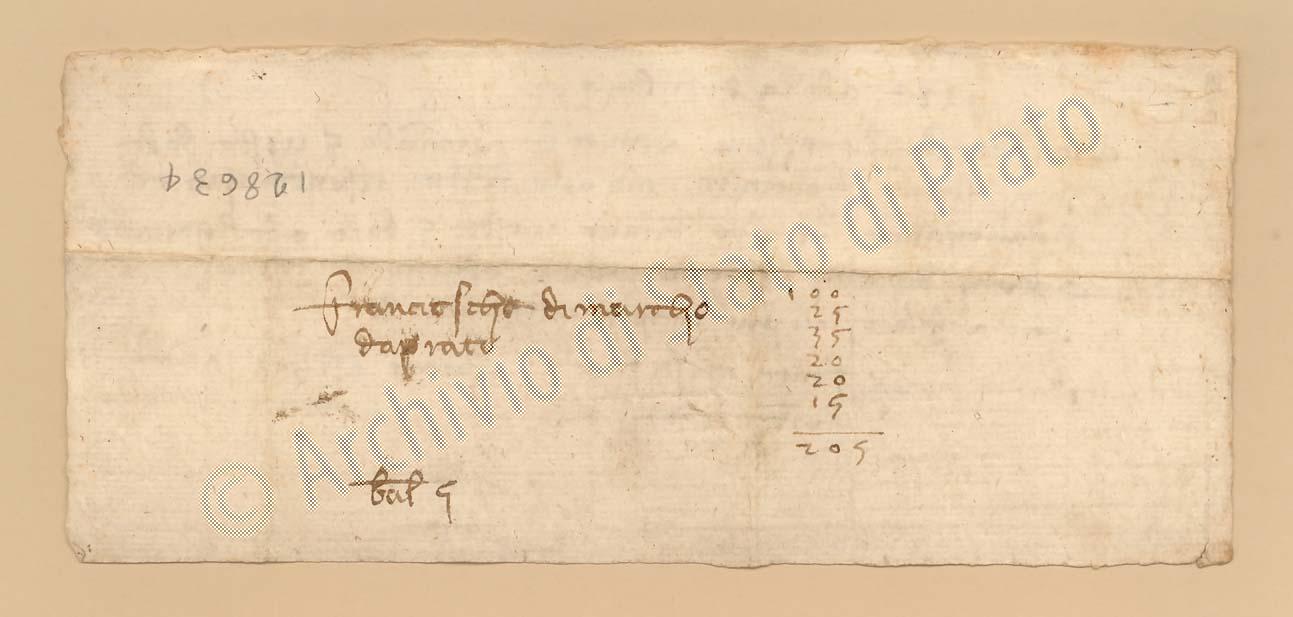 © Archivio di Stato di Prato
128634
Franciescho di marcho
da prato
bal 5
100
25
35
20
20
15
205